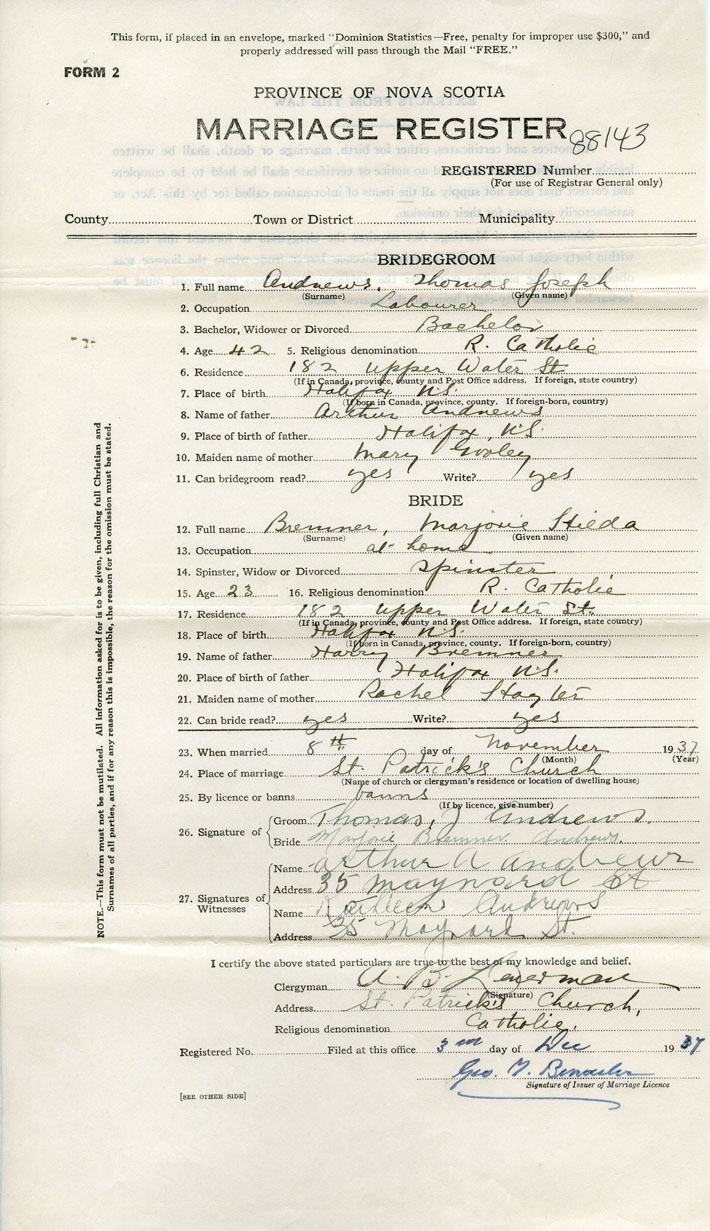 This form, if placed in an envelope, marked "Dominion Statistics—Free, penalty for improper use $300," and
properly addressed will pass through the Mail "FREE."
FORM 2
PROVINCE OF NOVA SCOTIA
MARRIAGE REGISTER 88143
REGISTERED Number
(For use of Registrar General only)
County Town or District Municipality
BRIDEGROOM
1. Full name Andrews, Thomas Joseph
(Surname) (Given name)
2. Occupation Labourer
3. Bachelor, Widower or Divorced Bachelor
4. Age 42 5. Religious denomination R. Catholic
6. Residence 182 Upper Water St.
(If in Canada, province, county and Post Office address. If foreign, state country)
7. Place of birth Halifax N.S.
(If born in Canada, province, county. If foreign-born, country)
8. Name of father Arthur Andrews
9. Place of birth of father Halifax, N.S.
10. Maiden name of mother Mary
11. Can bridegroom read? yes Write? yes
BRIDE
12. Full name Bremner, Marjorie Hilda
(Surname) (Given name)
13. Occupation at home
14. Spinster, Widow or Divorced Spinster
15. Age 23 16. Religious denomination R. Catholic
17. Residence 182 Upper Water St.
(If in Canada, province, county and Post Office address. If foreign, state country)
18. Place of birth Halifax N.S.
(If born in Canada, province, county. If foreign-born, country)
19. Name of father Harry Bremner
20. Place of birth of father Halifax N.S.
21. Maiden name of mother Rachel
22. Can bride read? yes Write? yes
23. When married 8th day of November 1937
(Month) (Year)
24. Place of marriage St. Patrick's Church
(Name of church or clergyman's residence or location of dwelling house)
25. By licence or banns banns
(If by licence, give number)
26. Signature of Groom Thomas, J Andrews.
Bride Marjorie Bremner Andrews.
27. Signatures of Witnesses Name Arthur A Andrews
Address 35 Maynard St
Name Andrews
Address 35 Maynard St.
I certify the above stated particulars are true to the best of my knowledge and belief.
Clergyman A. B.
(Signature)
Address St. Patrick's Church,
Religious denomination Catholic.
Registered No. Filed at this office 3rd day of Dec 1937
Geo.
Signature of Issuer of Marriage Licence
[SEE OTHER SIDE]
NOTE.—This form must not be mutilated. All information asked for is to be given, including full Christian and
Surnames of all parties, and if for any reason this is impossible, the reason for the omission must be stated.